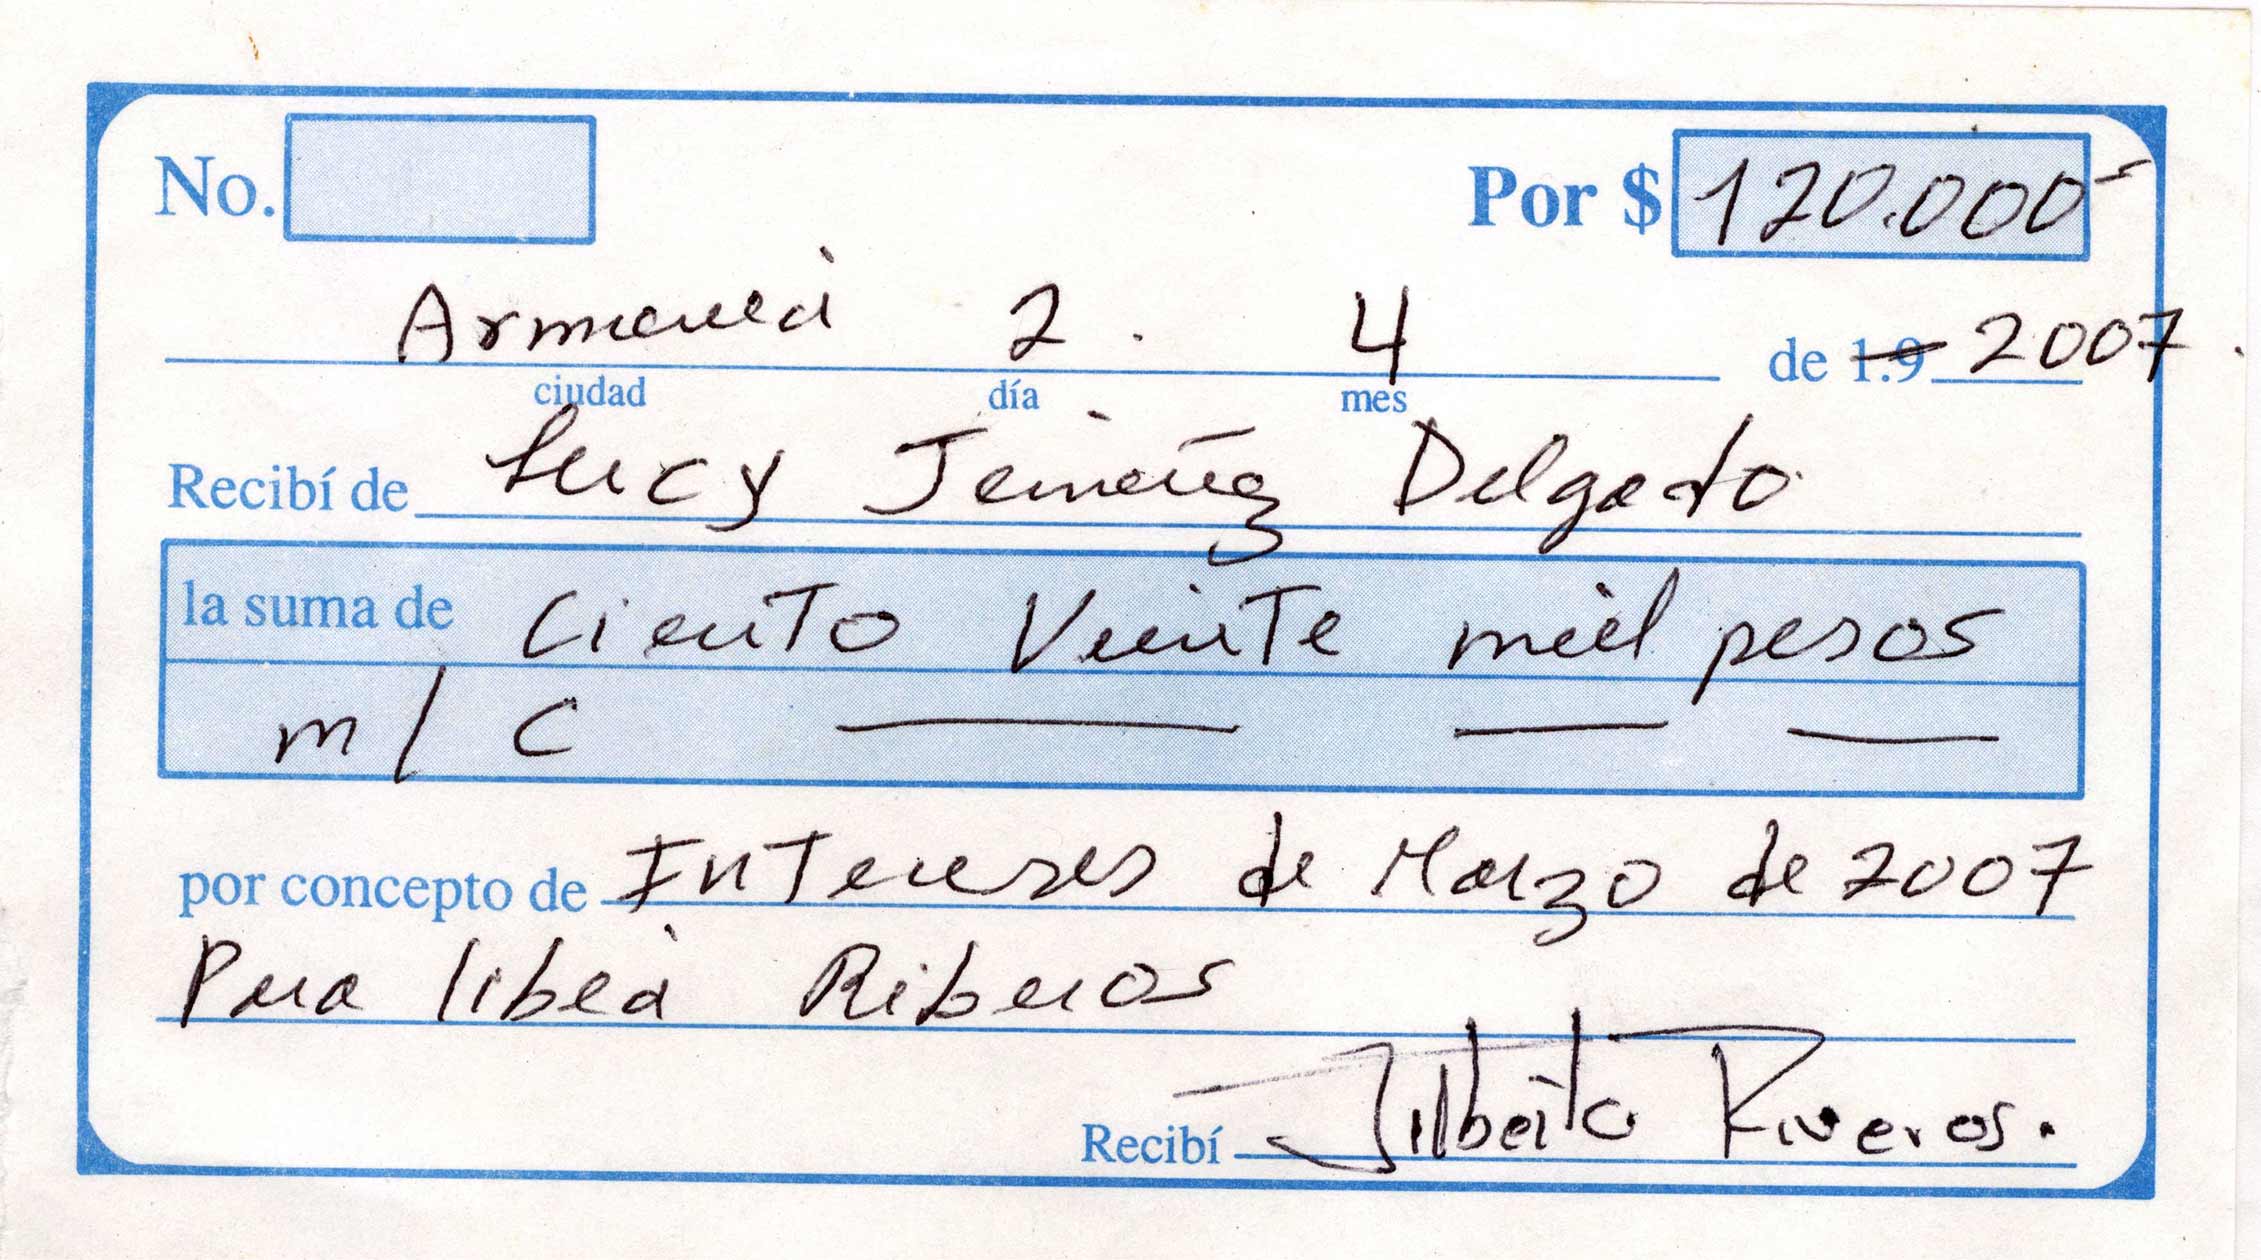 No. Por $ 120.000-
Armenia 2. 4 de 1.9 2007.
ciudad día mes
Recibí de Lucy Jeménez Delgado
la suma de Ciento Veinte mil pesos
m/c
por concepto de Intereses de Marzo de 2007
Para libia Riberos
Recibí Jilberto Riveros.